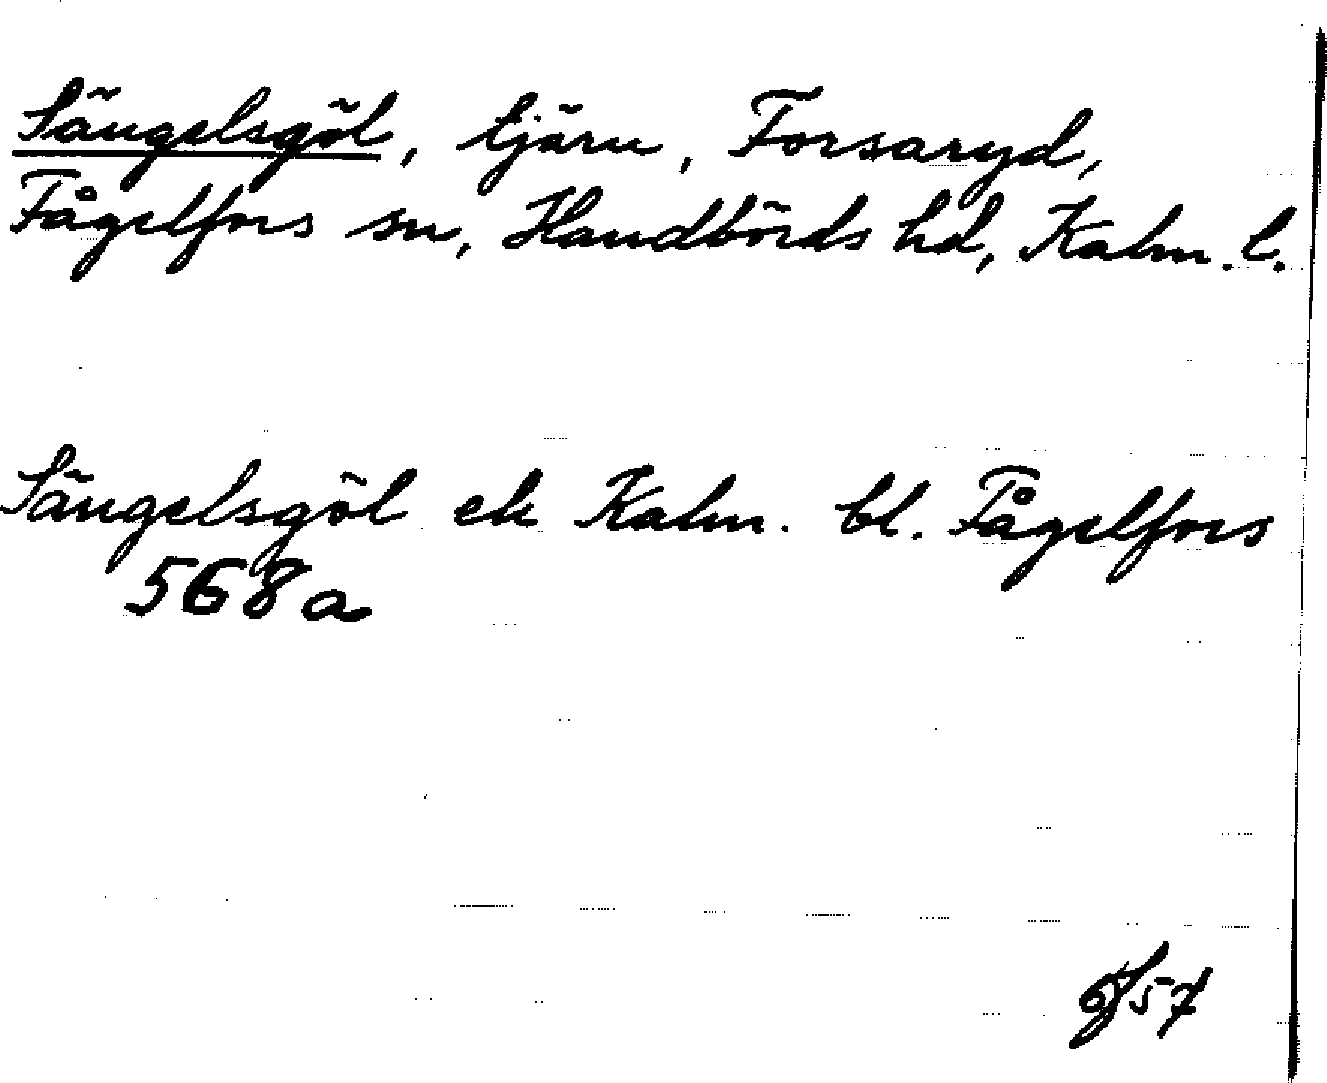 Sängelsgöl, tjärn, Forsaryd,
Fågelfors sn, Handbörds hd, Kalm. l.
Sängelsgöl ek Kalm. bl. Fågelfors
568a
57